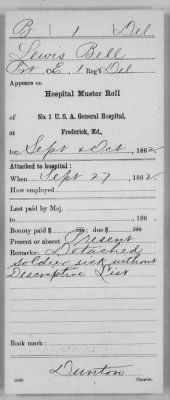 B | 1 | Del
Lewis Bell
Pvt, E, 1 Reg't Del
Appears on
Hospital Muster Roll
of No. 1 U. S. A. General Hospital,
at Frederick, Md.,
for Sept & Oct, 1862.
Attached to hospital:
When Sept 27, 1862.
How employed
Last paid by Maj.
to , 186 .
Bounty paid $ ; due $
Present or absent Present
Remarks: Detached
soldier sick without
Descriptive List
Book mark:
Dunton
Copyist.